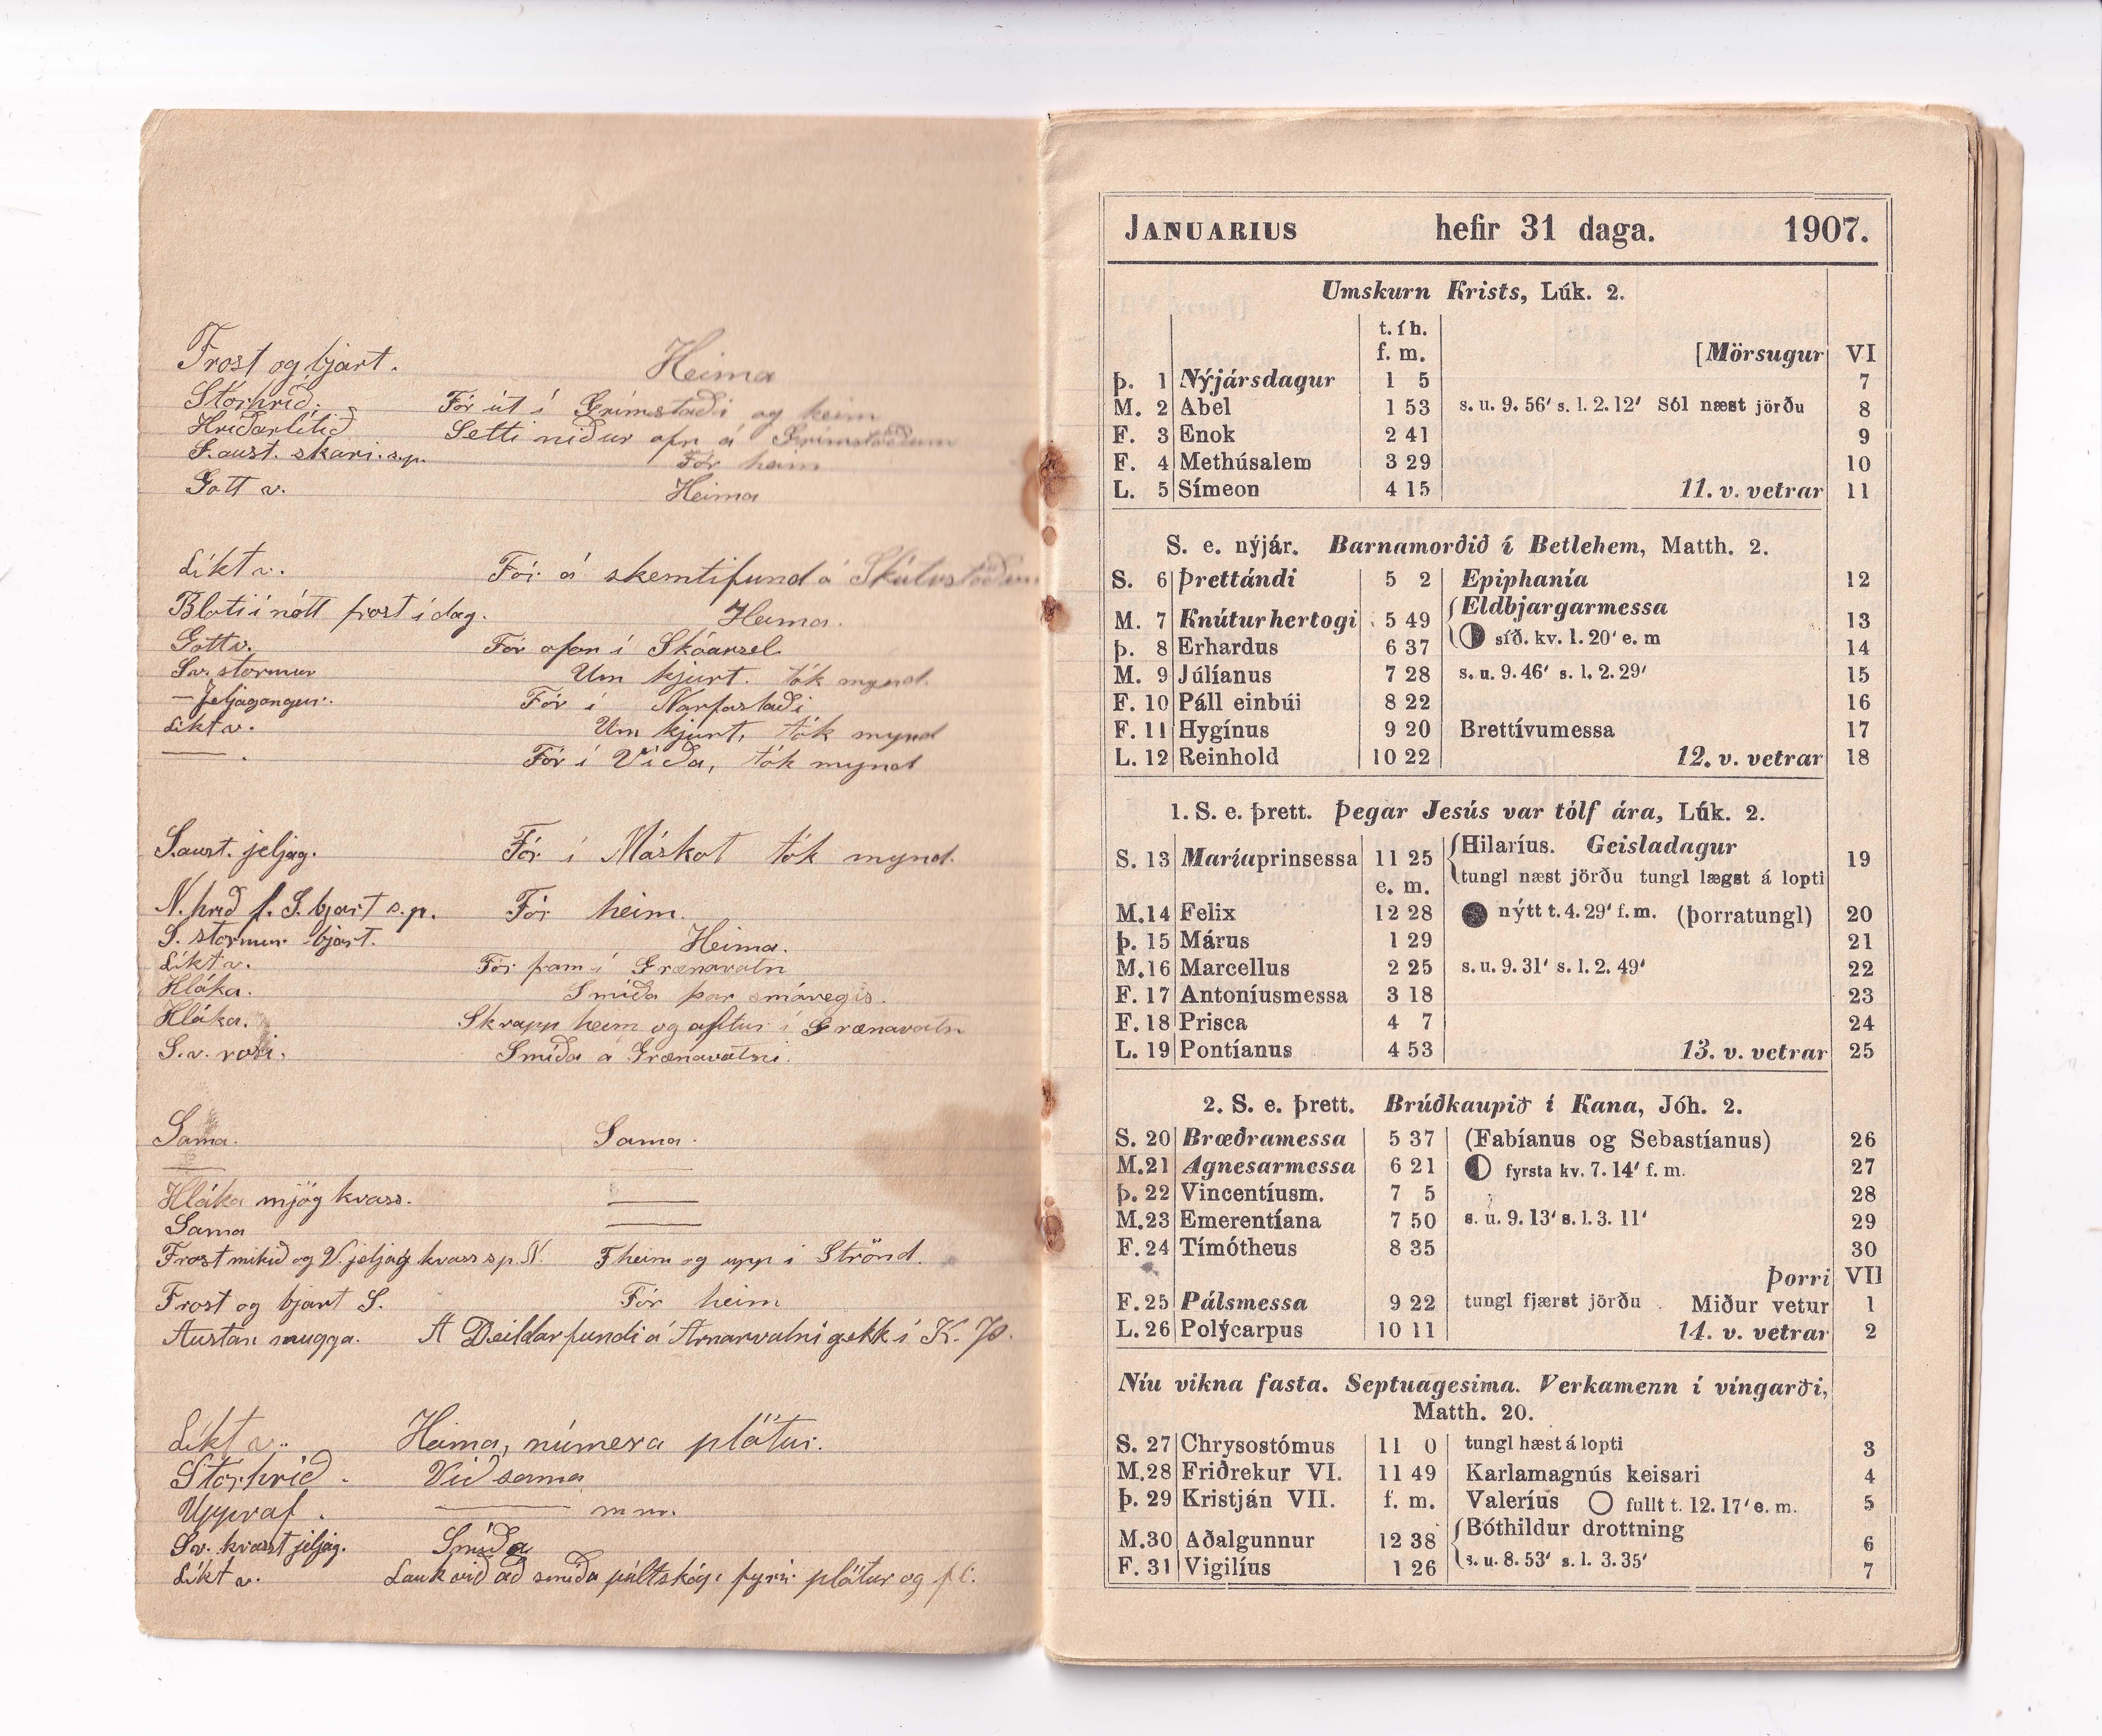 Frost og bjart. Heima
Stórhríð. Fór út í Grímstaði og heim
Hríðarlítið Setti niður ofn á Grímstöðum
S.aust. skari. s.p. Fór heim
Gott v. Heima
Líkt v. Fór á skemtifund á Skútustöðum
Bloti í nótt frost í dag. Heima.
Gott v. Fór ofan í Skóarsel
Sv. stormur Um kjurt. tók mynd.
— Jeljagangur. Fór í Narfastaði
Líkt v. Um kjurt, tók mynd
— Fór í Víða, tók mynd
S.aust. jeljag. Fór í Máskot tók mynd.
N. hríð f. S. bjart s.p. Fór heim.
S. stormur bjart. Heima.
Líkt v. Fór fram í Grænavatn
Hláka. Smíða þar smávegis.
Hláka. Skrapp heim og aftur í Grænavatn
S.v. rosi. Smíða á Grænavatni.
Sama. Sama.
— —
Hláka mjög kvass. —
Sama —
Frost mikið og V. jeljag kvass sp. N. F heim og upp í Strönd.
Frost og bjart S. Fór heim
Austan mugga. Á Deildarfundi á Arnarvatni gekk í K. Þ.
Líkt v. Heima, númera plötur.
Stórhríð. Við sama
Upprof. — m m.
Sv. kvasst jeljag. Smíða
Líkt v. Lauk við að smíða púltskáp fyrir plötur og fl.
JANUARIUS hefir 31 daga. 1907.
Umskurn Krists, Lúk. 2.
t. í h.
f. m. [Mörsugur VI
Þ. 1 Nýjársdagur 1 5 7
M. 2 Abel 1 53 s. u. 9. 56' s. l. 2. 12' Sól næst jörðu 8
F. 3 Enok 2 41 9
F. 4 Methúsalem 3 29 10
L. 5 Símeon 4 15 11. v. vetrar 11
S. e. nýjár. Barnamorðið í Betlehem, Matth. 2.
S. 6 Þrettándi 5 2 Epiphanía 12
M. 7 Knútur hertogi 5 49 Eldbjargarmessa 13
síð. kv. l. 20' e. m
Þ. 8 Erhardus 6 37 14
M. 9 Júlíanus 7 28 s. u. 9. 46' s. l. 2. 29' 15
F. 10 Páll einbúi 8 22 16
F. 11 Hygínus 9 20 Brettívumessa 17
L. 12 Reinhold 10 22 12. v. vetrar 18
1. S. e. Þrett. Þegar Jesús var tólf ára, Lúk. 2.
S. 13 Maríaprinsessa 11 25 Hilaríus. Geisladagur 19
e. m. tungl næst jörðu tungl lægst á lopti
M. 14 Felix 12 28 nýtt t. 4. 29' f. m. (þorratungl) 20
Þ. 15 Márus 1 29 21
M. 16 Marcellus 2 25 s. u. 9. 31' s. l. 2. 49' 22
F. 17 Antoníusmessa 3 18 23
F. 18 Prisca 4 7 24
L. 19 Pontíanus 4 53 13. v. vetrar 25
2. S. e. Þrett. Brúðkaupið í Kana, Jóh. 2.
S. 20 Bræðramessa 5 37 (Fabíanus og Sebastíanus) 26
M. 21 Agnesarmessa 6 21 fyrsta kv. 7. 14' f. m. 27
Þ. 22 Vincentíusm. 7 5 28
M. 23 Emerentíana 7 50 s. u. 9. 13' s. l. 3. 11' 29
F. 24 Tímótheus 8 35 30
Þorri VII
F. 25 Pálsmessa 9 22 tungl fjærst jörðu Miður vetur 1
L. 26 Polýcarpus 10 11 14. v. vetrar 2
Níu vikna fasta. Septuagesima. Verkamenn í víngarði,
Matth. 20.
S. 27 Chrysostómus 11 0 tungl hæst á lopti 3
M. 28 Friðrekur VI. 11 49 Karlamagnús keisari 4
Þ. 29 Kristján VII. f. m. Valeríus fullt t. 12. 17' e. m. 5
M. 30 Aðalgunnur 12 38 Bóthildur drottning 6
F. 31 Vigilíus 1 26 s. u. 8. 53' s. l. 3. 35' 7